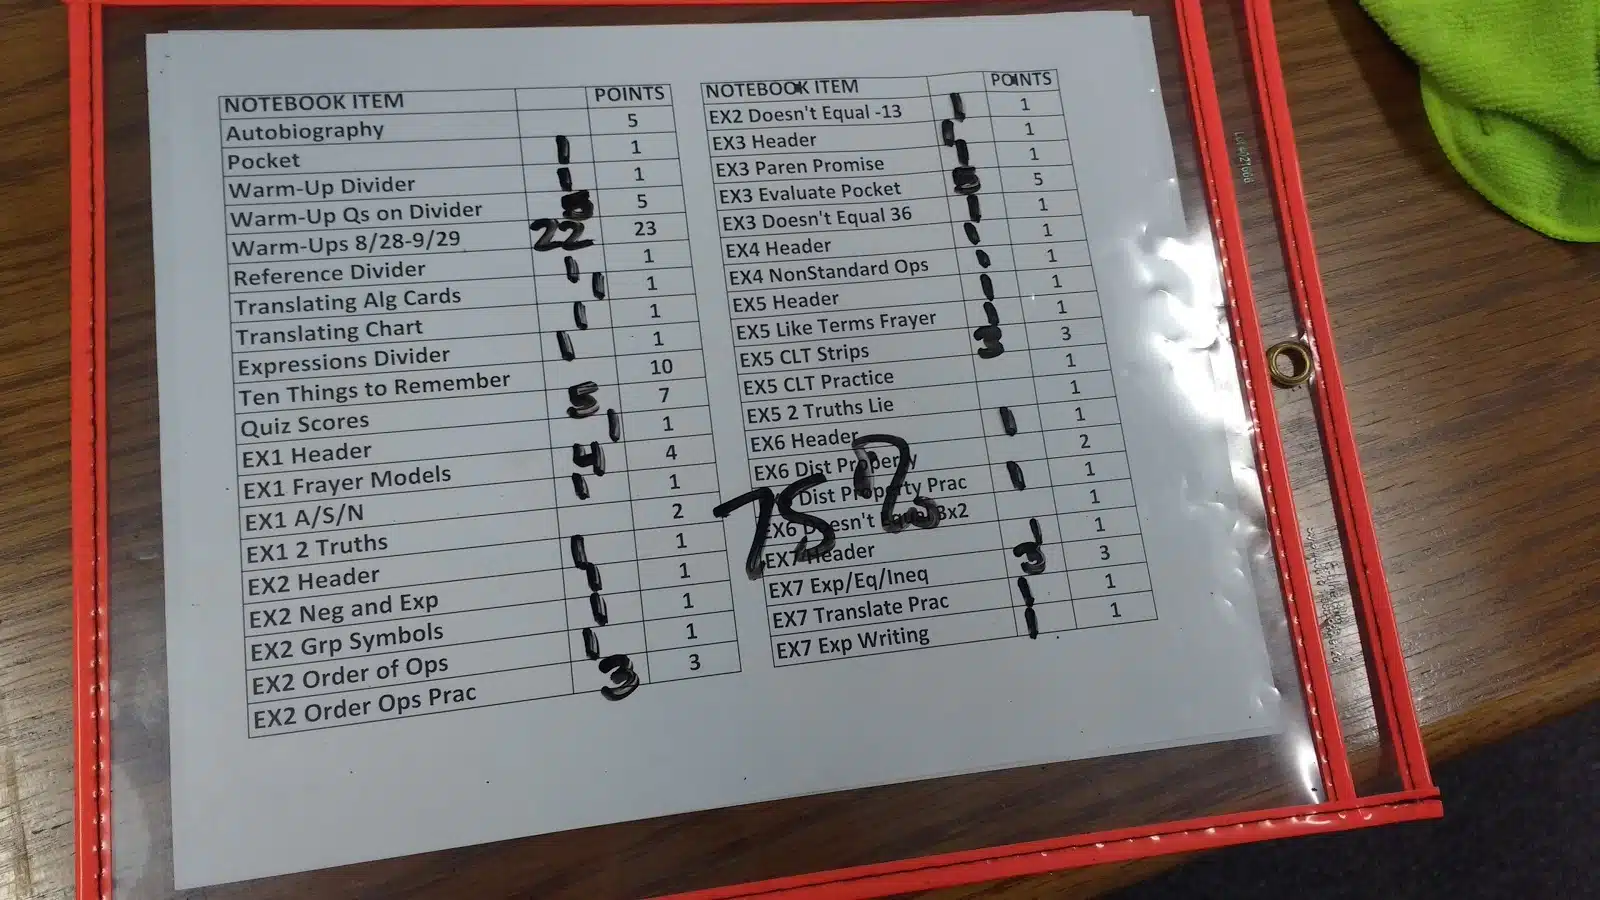 NOTEBOOK ITEM POINTS
Autobiography 5
Pocket 1 1
Warm-Up Divider 1 1
Warm-Up Qs on Divider 5
Warm-Ups 8/28-9/29 22 23
Reference Divider 1 1
Translating Alg Cards 1 1
Translating Chart 1 1
Expressions Divider 1 1
Ten Things to Remember 10
Quiz Scores 5 7
EX1 Header 1 1
EX1 Frayer Models 4 4
EX1 A/S/N 1 1
EX1 2 Truths 2
EX2 Header 1 1
EX2 Neg and Exp 1 1
EX2 Grp Symbols 1 1
EX2 Order of Ops 1 1
EX2 Order Ops Prac 3 3
NOTEBOOK ITEM POINTS
EX2 Doesn't Equal -13 1 1
EX3 Header 1 1
EX3 Paren Promise 1 1
EX3 Evaluate Pocket 5 5
EX3 Doesn't Equal 36 1 1
EX4 Header 1 1
EX4 NonStandard Ops 1 1
EX5 Header 1 1
EX5 Like Terms Frayer 1 1
EX5 CLT Strips 3 3
EX5 CLT Practice 1
EX5 2 Truths Lie 1
EX6 Header 1 1
EX6 Dist Property 2
Dist Property Prac 1 1
EX6 Doesn't Equal 3x2 1
EX7 Header 1 1
EX7 Exp/Eq/Ineq 3 3
EX7 Translate Prac 1 1
EX7 Exp Writing 1 1
75